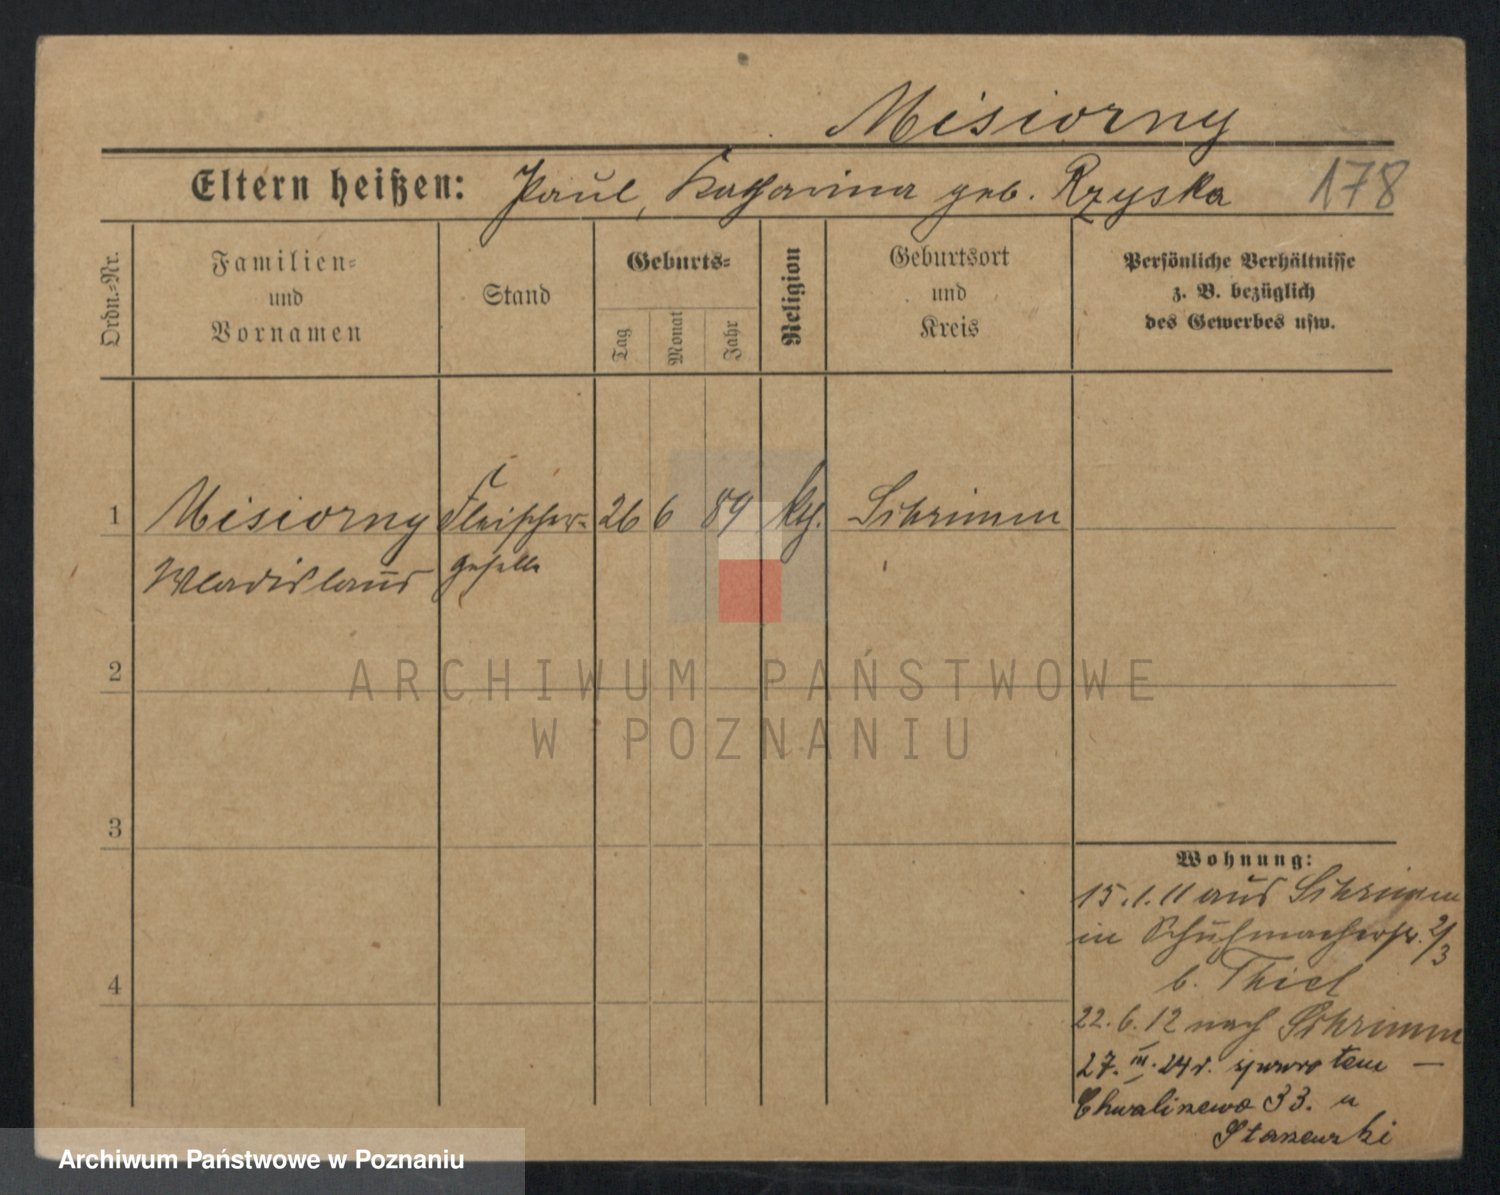 Misiorny
Eltern heißen: Paul, Katharina geb. Rzyska 178
Ordn.=Nr.
Familien=
und
Vornamen
Stand
Geburts=
Tag
Monat
Jahr
Religion
Geburtsort
und
Kreis
Persönliche Verhältnisse
z. B. bezüglich
des Gewerbes usw.
1 Misiorny Fleischer- 26 6 89 kth. Schrimm
Wladislaus geselle
2
ARCHIWUM PAŃSTWOWE
W POZNANIU
3
4
Wohnung:
15.1.11 aus Schrimm
in Schuhmacherstr. 2/3
b. Thiel
22.6.12 nach Schrimm
27. III. 24 r. —
Chwaliszewo 33. u
Archiwum Państwowe w Poznaniu